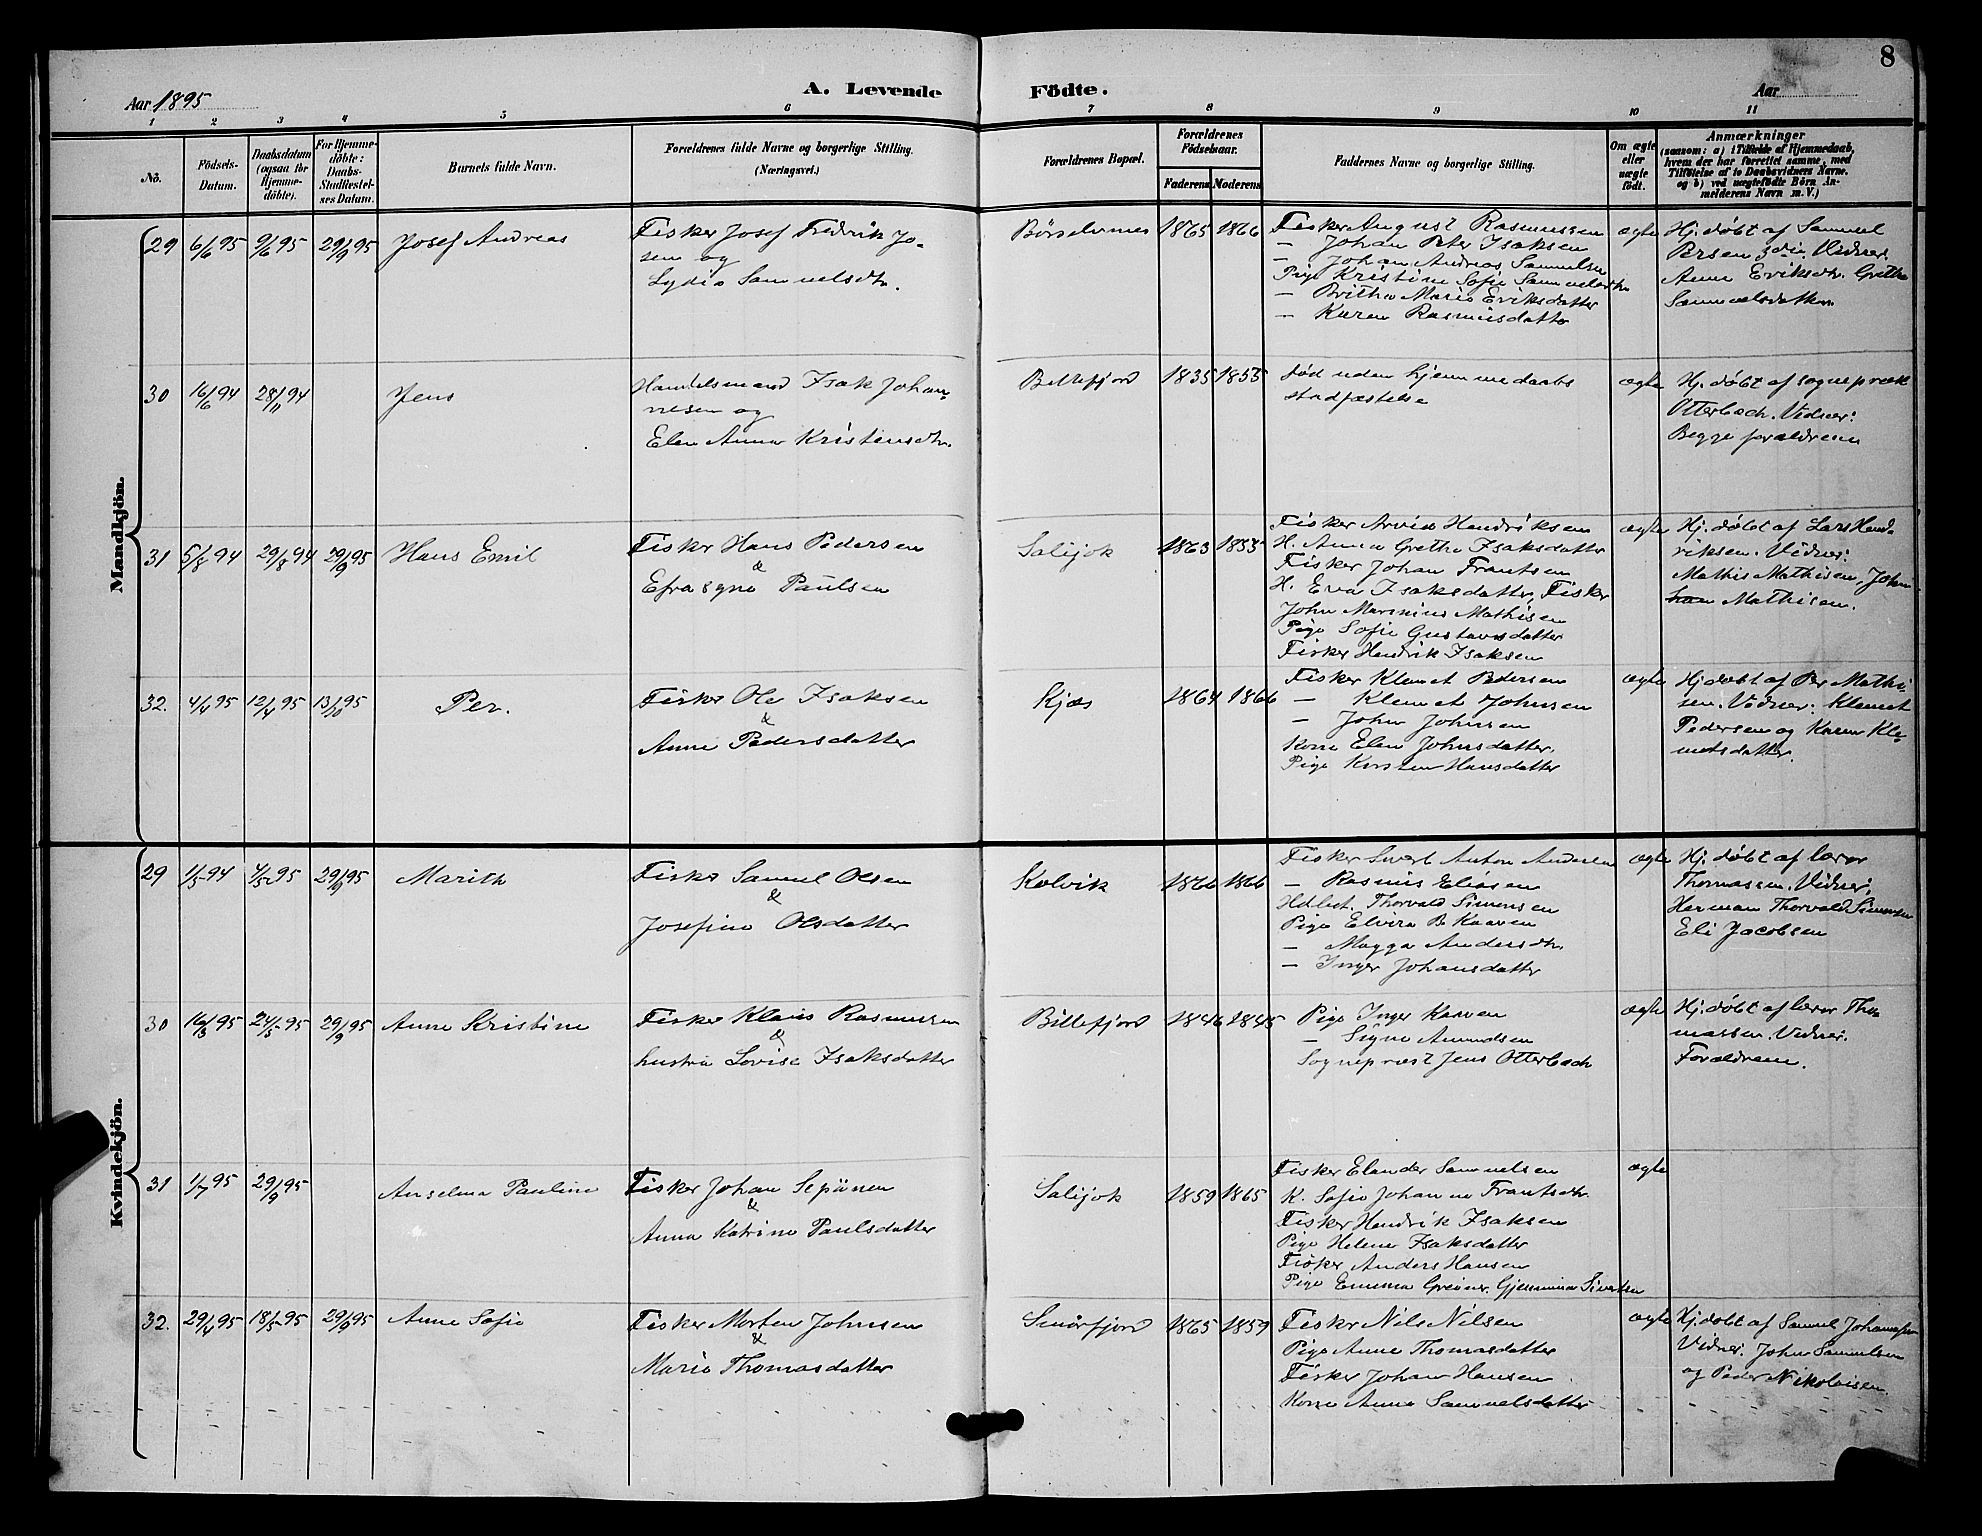 8
Aar 1895 A. Levende Födte. Aar
1 2 3 4 5 6 7 8 9 10 11
No.
Födsels-Datum.
Daabsdatum (ogsaa for Hjemme-döbte).
For Hjemme-döbte: Daabs-Stadfæstel-ses Datum.
Barnets fulde Navn.
Forældrenes fulde Navne og borgerlige Stilling.
(Næringsvei.)
Forældrenes Bopæl.
Forældrenes Födselsaar.
Faderens Moderens
Faddernes Navne og borgerlige Stilling.
Om ægte eller uægte födt.
Anmærkninger
(saasom: a) i Tilfælde af Hjemmedaab,
hvem der har forrettet samme, med
Tilföielse af to Daabsvidners Navne.
og b) ved uægtefödte Börn An-
melderens Navn m. V.)
Mandkjön.
29 6/6 95 9/6 95 29/9 95 Josef Andreas
Fisker Josef Fredrik Jo-
sen og
Lydia Samuelsdtr.
Börselvnes 1865 1866
Fisker August Rasmussen
— Johan Peter Isaksen
— Johan Andreas Samuelsen
Pige Kristine Sofie Samuelsdtr
— Britha Marie Eriksdatter
— Karen Rasmusdatte
ægte
Hj. döbt af Samuel
Persen Vidner:
Anna Eriksdtr. Grethe
Samuelsdatter.
30 16/6 94 28/11 94 Jens
Handelsmand Isak Johan-
nesen og
Elen Anna Kristensdtr.
Billefjord 1835 1855
död uden hjemmedaabs
stadfæstelse
ægte
Hj. döbt af sognepræst
Otterbech. Vidner:
Begge forældrene
31 5/8 94 29/8 94 29/9 95 Hans Emil
Fisker Hans Pedersen
&
Efrasyne Paulsen
Salijok 1863 1855
Fisker Arvid Hendriksen
H. Anna Grethe Isaksdatter
Fisker Johan Frantsen
H. Eva Isaksdatter, Fisker
John Marenius Mathisen
Pige Sofie Gustavsdatter
Fisker Hendrik Isaksen
ægte
Hj. döbt af Lars Hend-
riksen. Vidner:
Mathis Mathisen, Johan
Mathisen.
32. 4/4 95 12/4 95 13/10 95 Per.
Fisker Ole Isaksen
&
Anne Pedersdatter
Kjæs 1864 1866
Fisker Klemet Pedersen
— Klemet Johnsen
— John Johnsen
Kone Elen Johnsdatter.
Pige Kirsten Hansdatter
ægte
Hj. döbt af Per Mathi-
sen. Vidner: Klemet
Pedersen og Karen Kle-
metsdatter.
Kvindekjön.
29 1/5 94 4/5 95 29/9 95 Marith
Fisker Samuel Olsen
&
Josefine Olsdatter
Kolvik 1866 1866
Fisker Sivert Anton Andersen
— Rasmus Eliasen
Hdlbet. Thorvald Simonsen
Pige Elvira B. Kaaven
— Magga Andersdtr.
— Inger Johansdatter
ægte
Hj. döbt af lærer
Thomassen. Vidner:
Herman Thorvald Simonsen
Eli Jacobsen
30 16/3 95 24/5 95 29/9 95 Anne Kristine
Fisker Klaus Rasmussen
&
hustru Lovise Isaksdatter
Billefjord 1846 1845
Pige Inger Kaaven
— Signe Amundsen
Sognepræst Jens Otterbech
ægte
Hj. döbt af lærer Tho-
massen. Vidner:
Forældrene.
31 1/7 95 29/9 95 Anselma Pauline
Fisker Johan Sepänen
&
Anna Katrine Paulsdatter
Salijok 1859 1865
Fisker Elander Samuelsen
K. Sofie Johanne Frantsdtr.
Fisker Hendrik Isaksen
Pige Helene Isaksdatter
Fisker Anders Hansen
Pige Emma Greiner. Gjemmina Sivertsen
ægte
32. 29/4 95 18/5 95 29/9 95 Anne Sofie
Fisker Morten Johnsen
&
Marie Thomasdatter
Smörfjord 1865 1859
Fisker Nils Nilsen
Pige Anne Thomasdatter
Fisker Johan Hansen
Kone Anne Samuelsdatter
ægte
Hj. döbt af Samuel Johansen
Vidner: John Samuelsen
og Peder Nikolaisen.